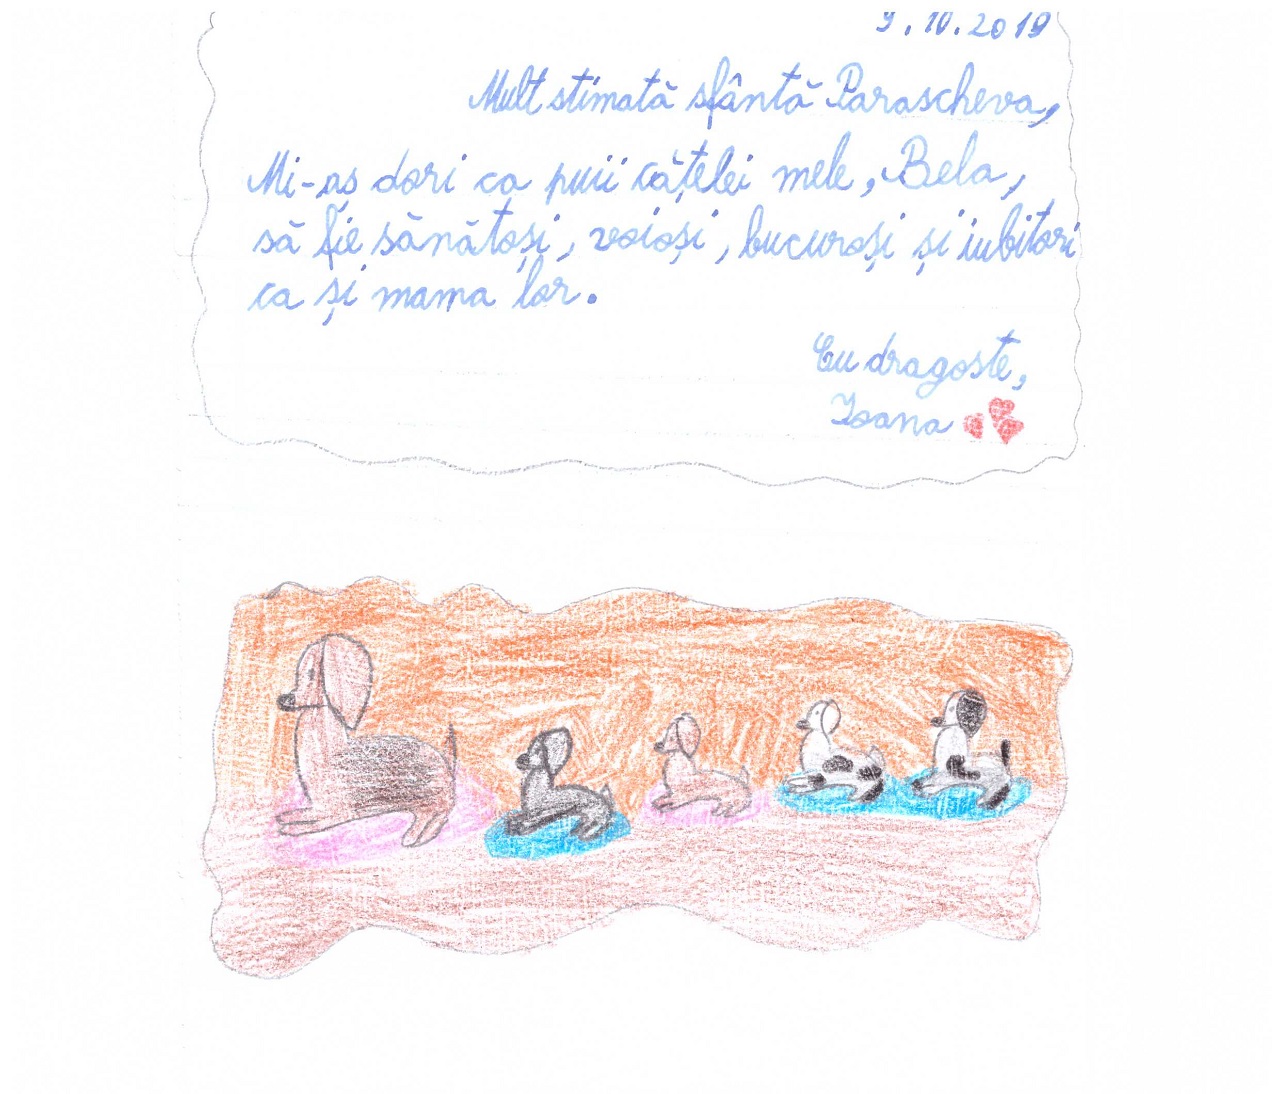 9.10.2019
Mult stimată sfântă Parascheva,
Mi-aș dori ca puii cățelei mele, Bela,
să fie sănătoși, voioși, bucuroși și iubitori
ca și mama lor.
Cu dragoste,
Ioana